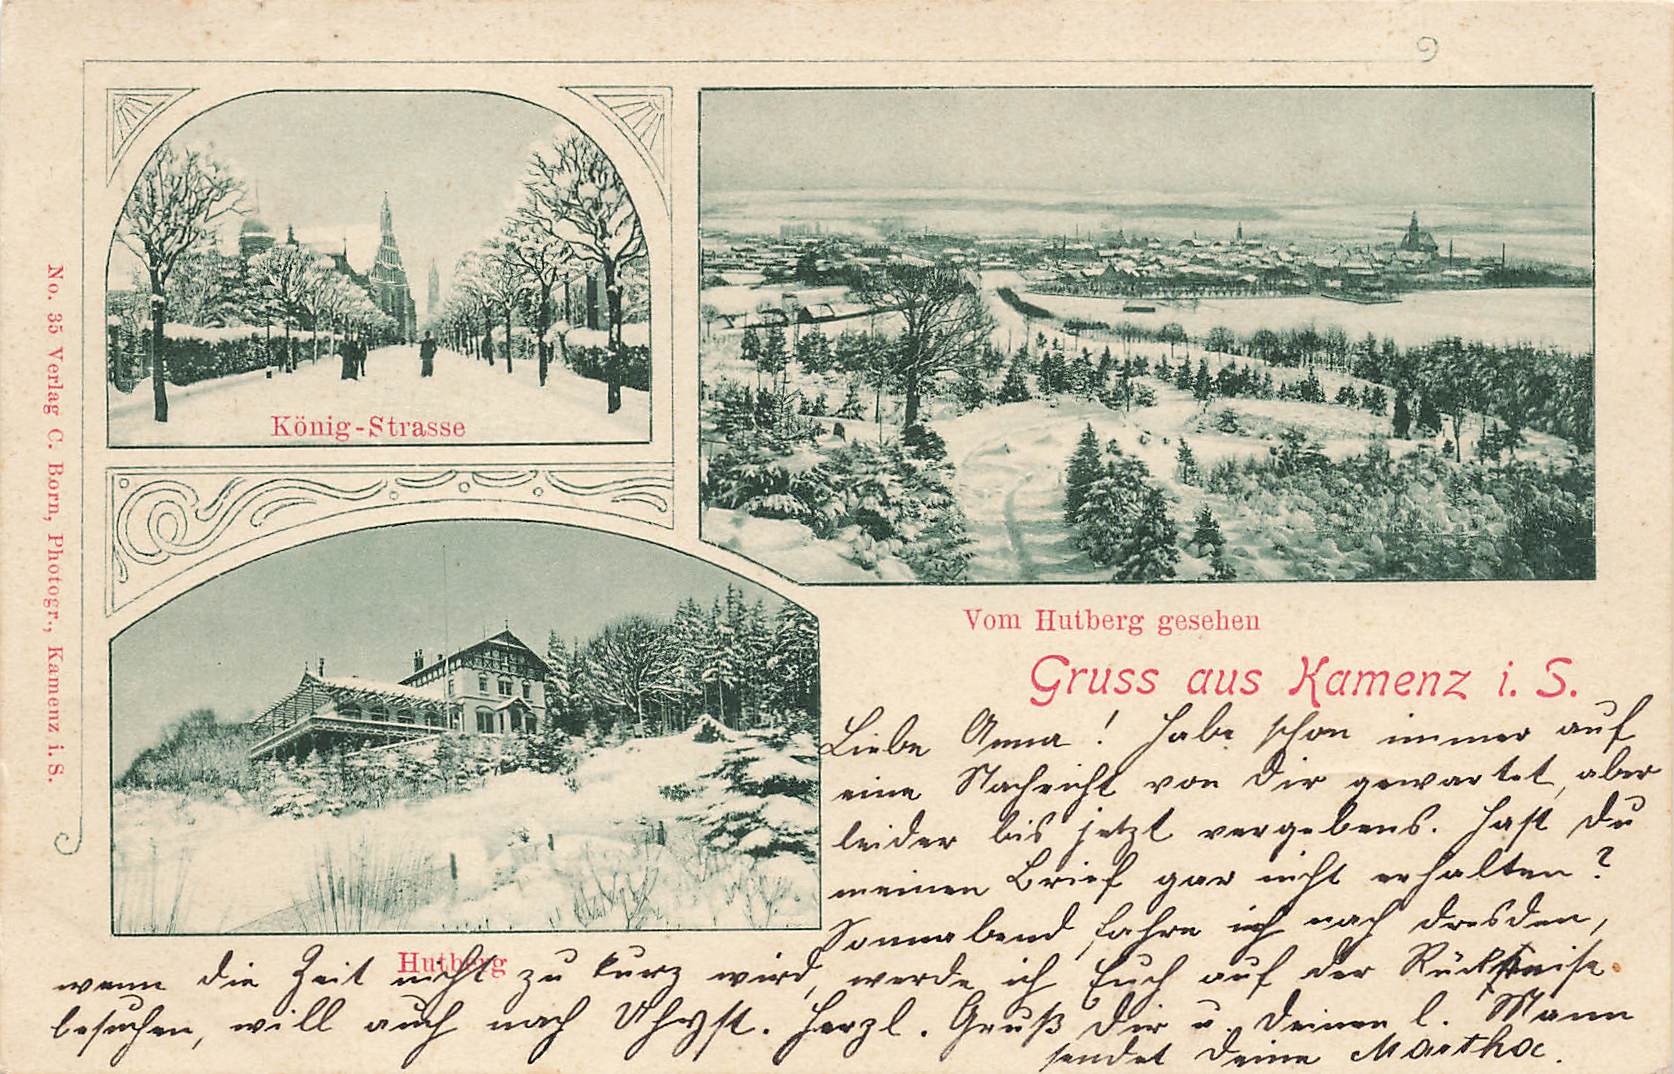 No. 35 Verlag C. Born, Photogr., Kamenz i. S.
König-Strasse
Vom Hutberg gesehen
Hutberg
Gruss aus Kamenz i. S.
Liebe Anna! Habe schon immer auf
eine Nachricht von Dir gewartet, aber
leider bis jetzt vergebens. Hast Du
meinen Brief gar nicht erhalten?
Sonnabend fahre ich nach Dresden,
wenn die Zeit nicht zu kurz wird, werde ich Euch auf der Rückreise
besuchen, will auch nach Uhyst. Herzl. Gruß Dir u. Deinen l. Mann
sendet Deine Martha.